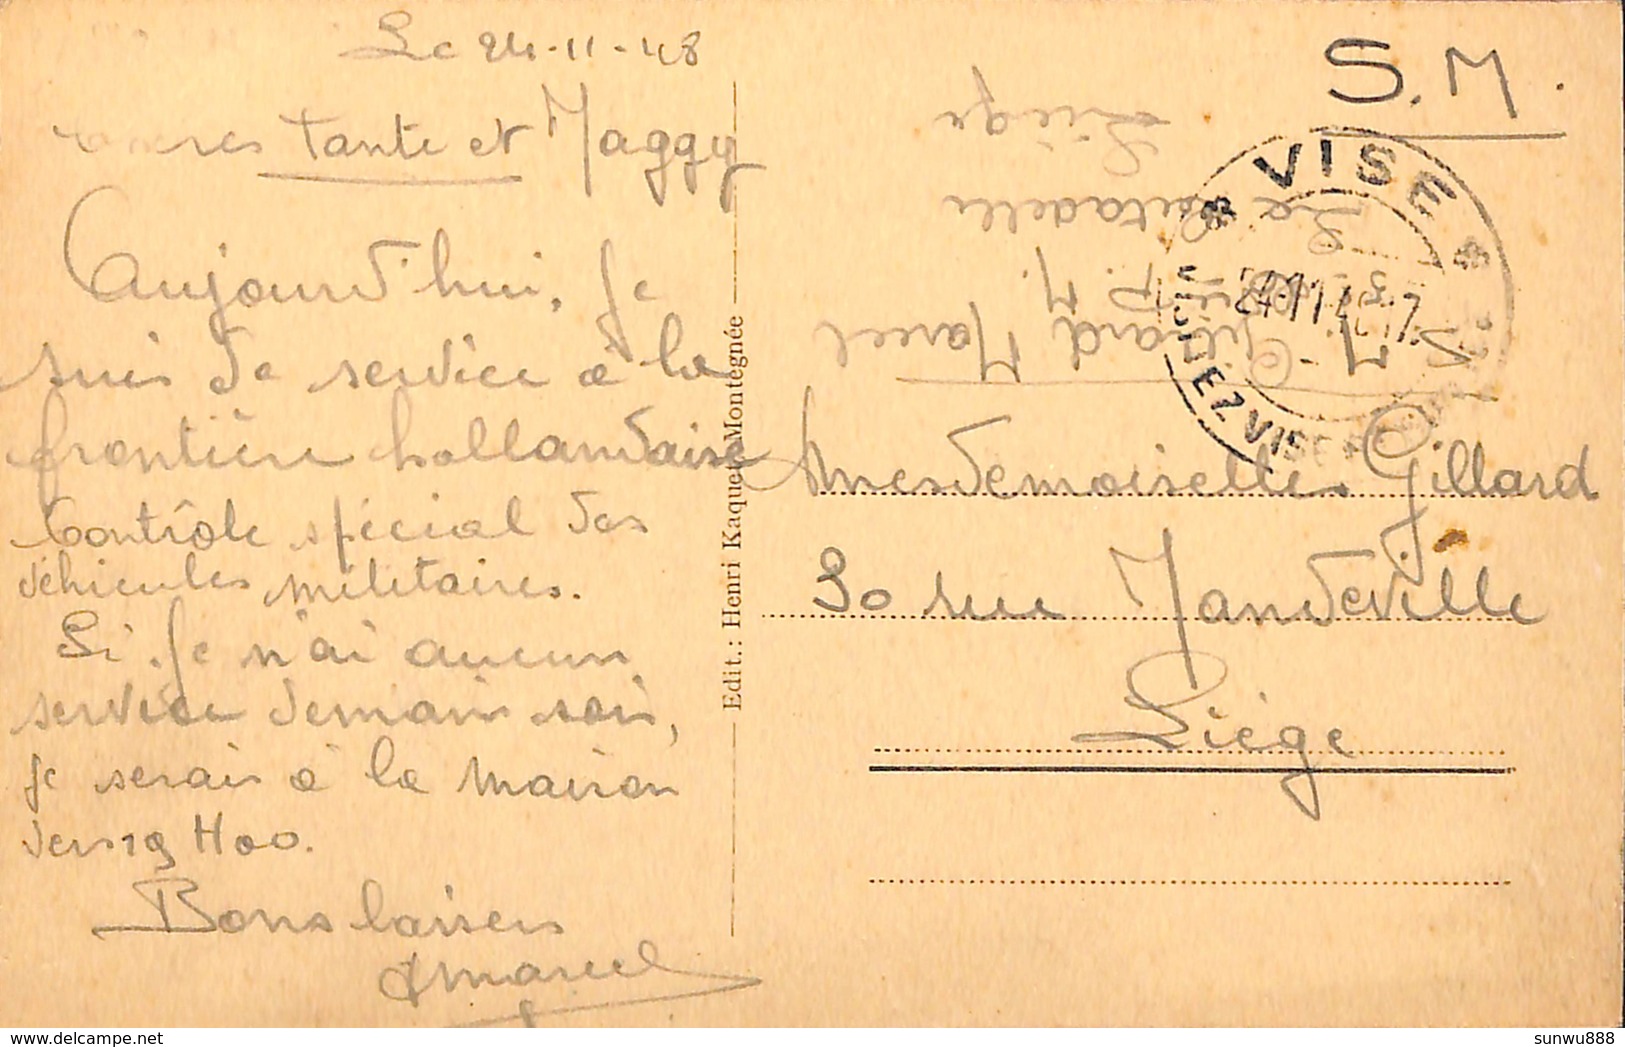 Le 24-11-48
Chères Tante et Maggy
Aujourd'hui, je
suis de service à la
frontière hollandaise
Contrôle spécial des
véhicules militaires.
Si je n'ai aucun
service demain soir,
je serais à la maison
vers 19 Hoo.
Bons baisers
Marcel
Edit.: Henri Kaquet Montegnée
S.M.
VISE
VISITEZ VISE
Mesdemoiselles Gillard
30 rue Mandeville
Liège
M. Gillard Marcel
P.M.
La Citadelle
Liège
sunwu888